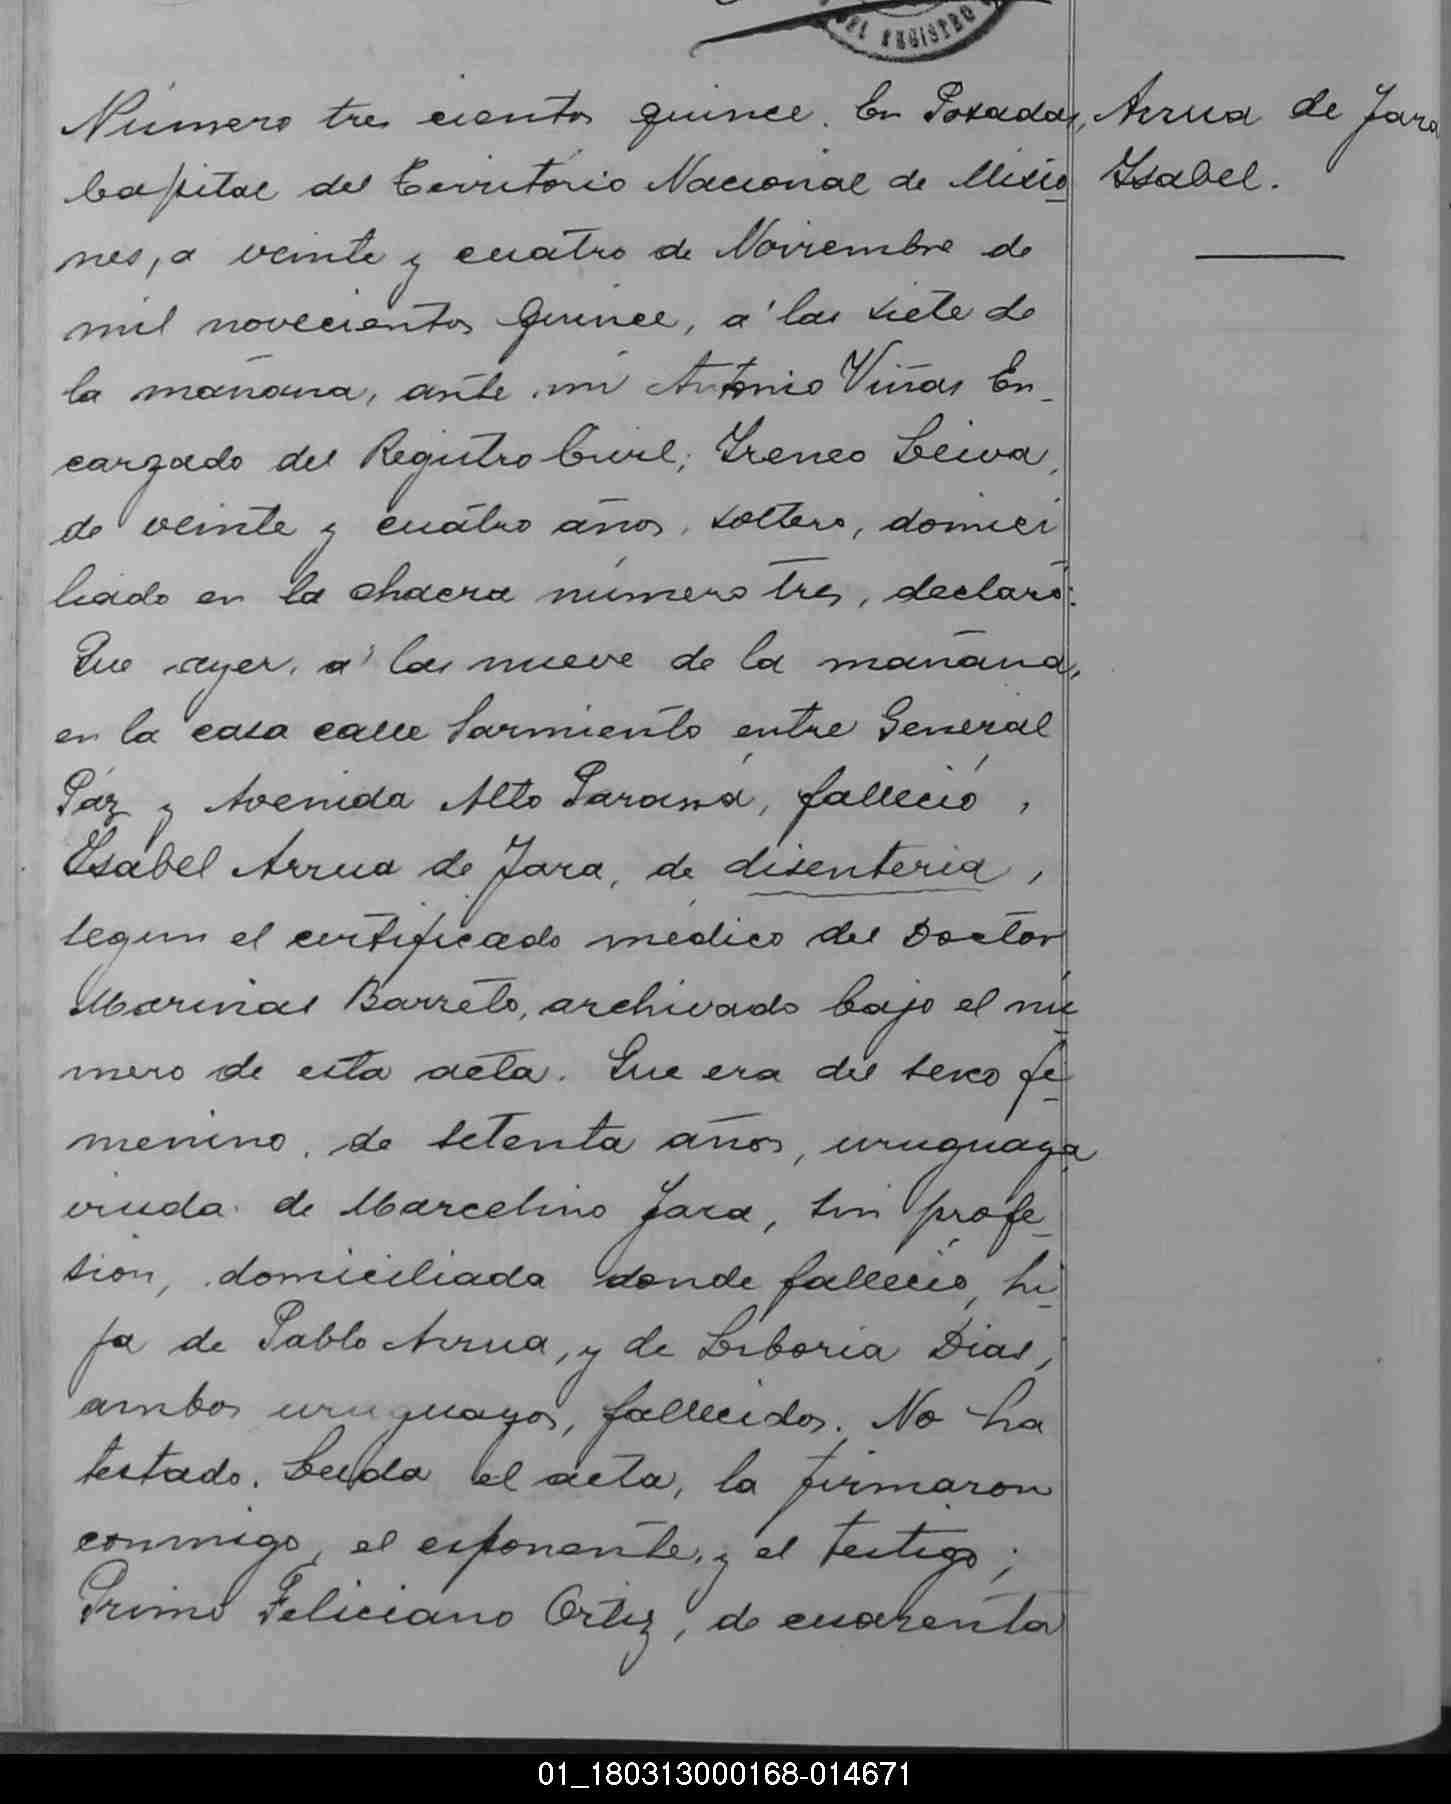 DEL REGISTRO
Número tres cientos quince. En Posadas,
Capital del Territorio Nacional de Misio
nes, a veinte y cuatro de Noviembre de
mil novecientos quince, á las siete de
la mañana, ante mi Antonio Viñas En-
cargado del Registro Civil; Ireneo Leiva,
de veinte y cuatro años, soltero, domici
liado en la chacra número tres, declaró:
Que ayer, a' las nueve de la mañana,
en la casa calle Sarmiento entre General
Páz y Avenida Alto Paraná, falleció,
Isabel Arrua de Jara, de disenteria,
segun el certificado médico del Doctor
Marinas Barreto, archivado bajo el nú
mero de esta acta. Que era del sexo fe
menino, de setenta años, uruguaya
viuda de Marcelino Jara, sin profe-
sion, domiciliada donde falleció, hi-
ja de Pablo Arrua, y de Liboria Dias,
ambos uruguayos, fallecidos. No ha
testado. Leida el acta, la firmaron
conmigo, el exponente, y el testigo;
Primo Feliciano Ortiz, de cuarenta
Arrua de Jara
Isabel.
01_180313000168-014671